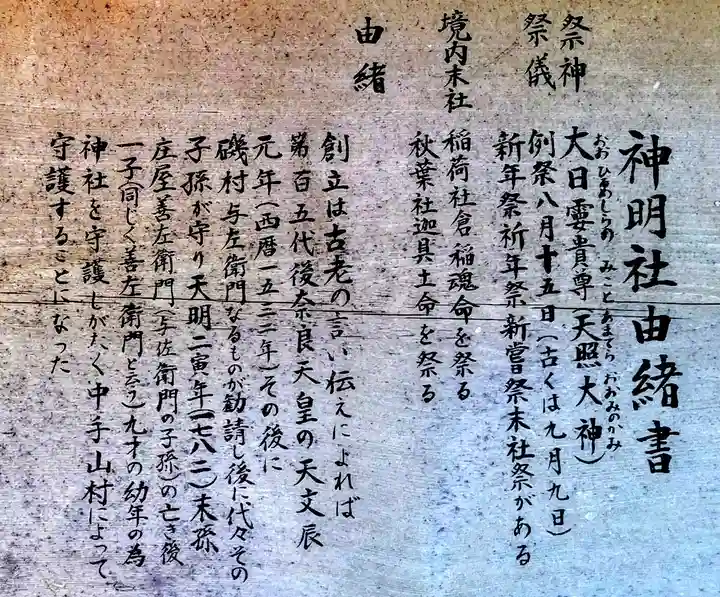 神明社由緒書
祭神 大日霊貴尊(天照大神)
おおひるめむちの みこと あまてらすおおみのかみ
祭儀 例祭八月十五日(古くは九月九日)
新年祭祈年祭新嘗祭末社祭がある
境内末社 稲荷社倉稲魂命を祭る
秋葉社迦具土命を祭る
由緒
創立は古老の言い伝えによれば
第百五代後奈良天皇の天文辰
元年(西暦一五三二年)その後に
磯村与左衛門なるものが勧請し後に代々その
子孫が守り天明二寅年(一七八二)末孫
庄屋善左衛門(与佐衛門の子孫)の亡き後
一子(同じく善左衛門と云う)九才の幼年の為
神社を守護しがたく中手山村によって
守護することになった